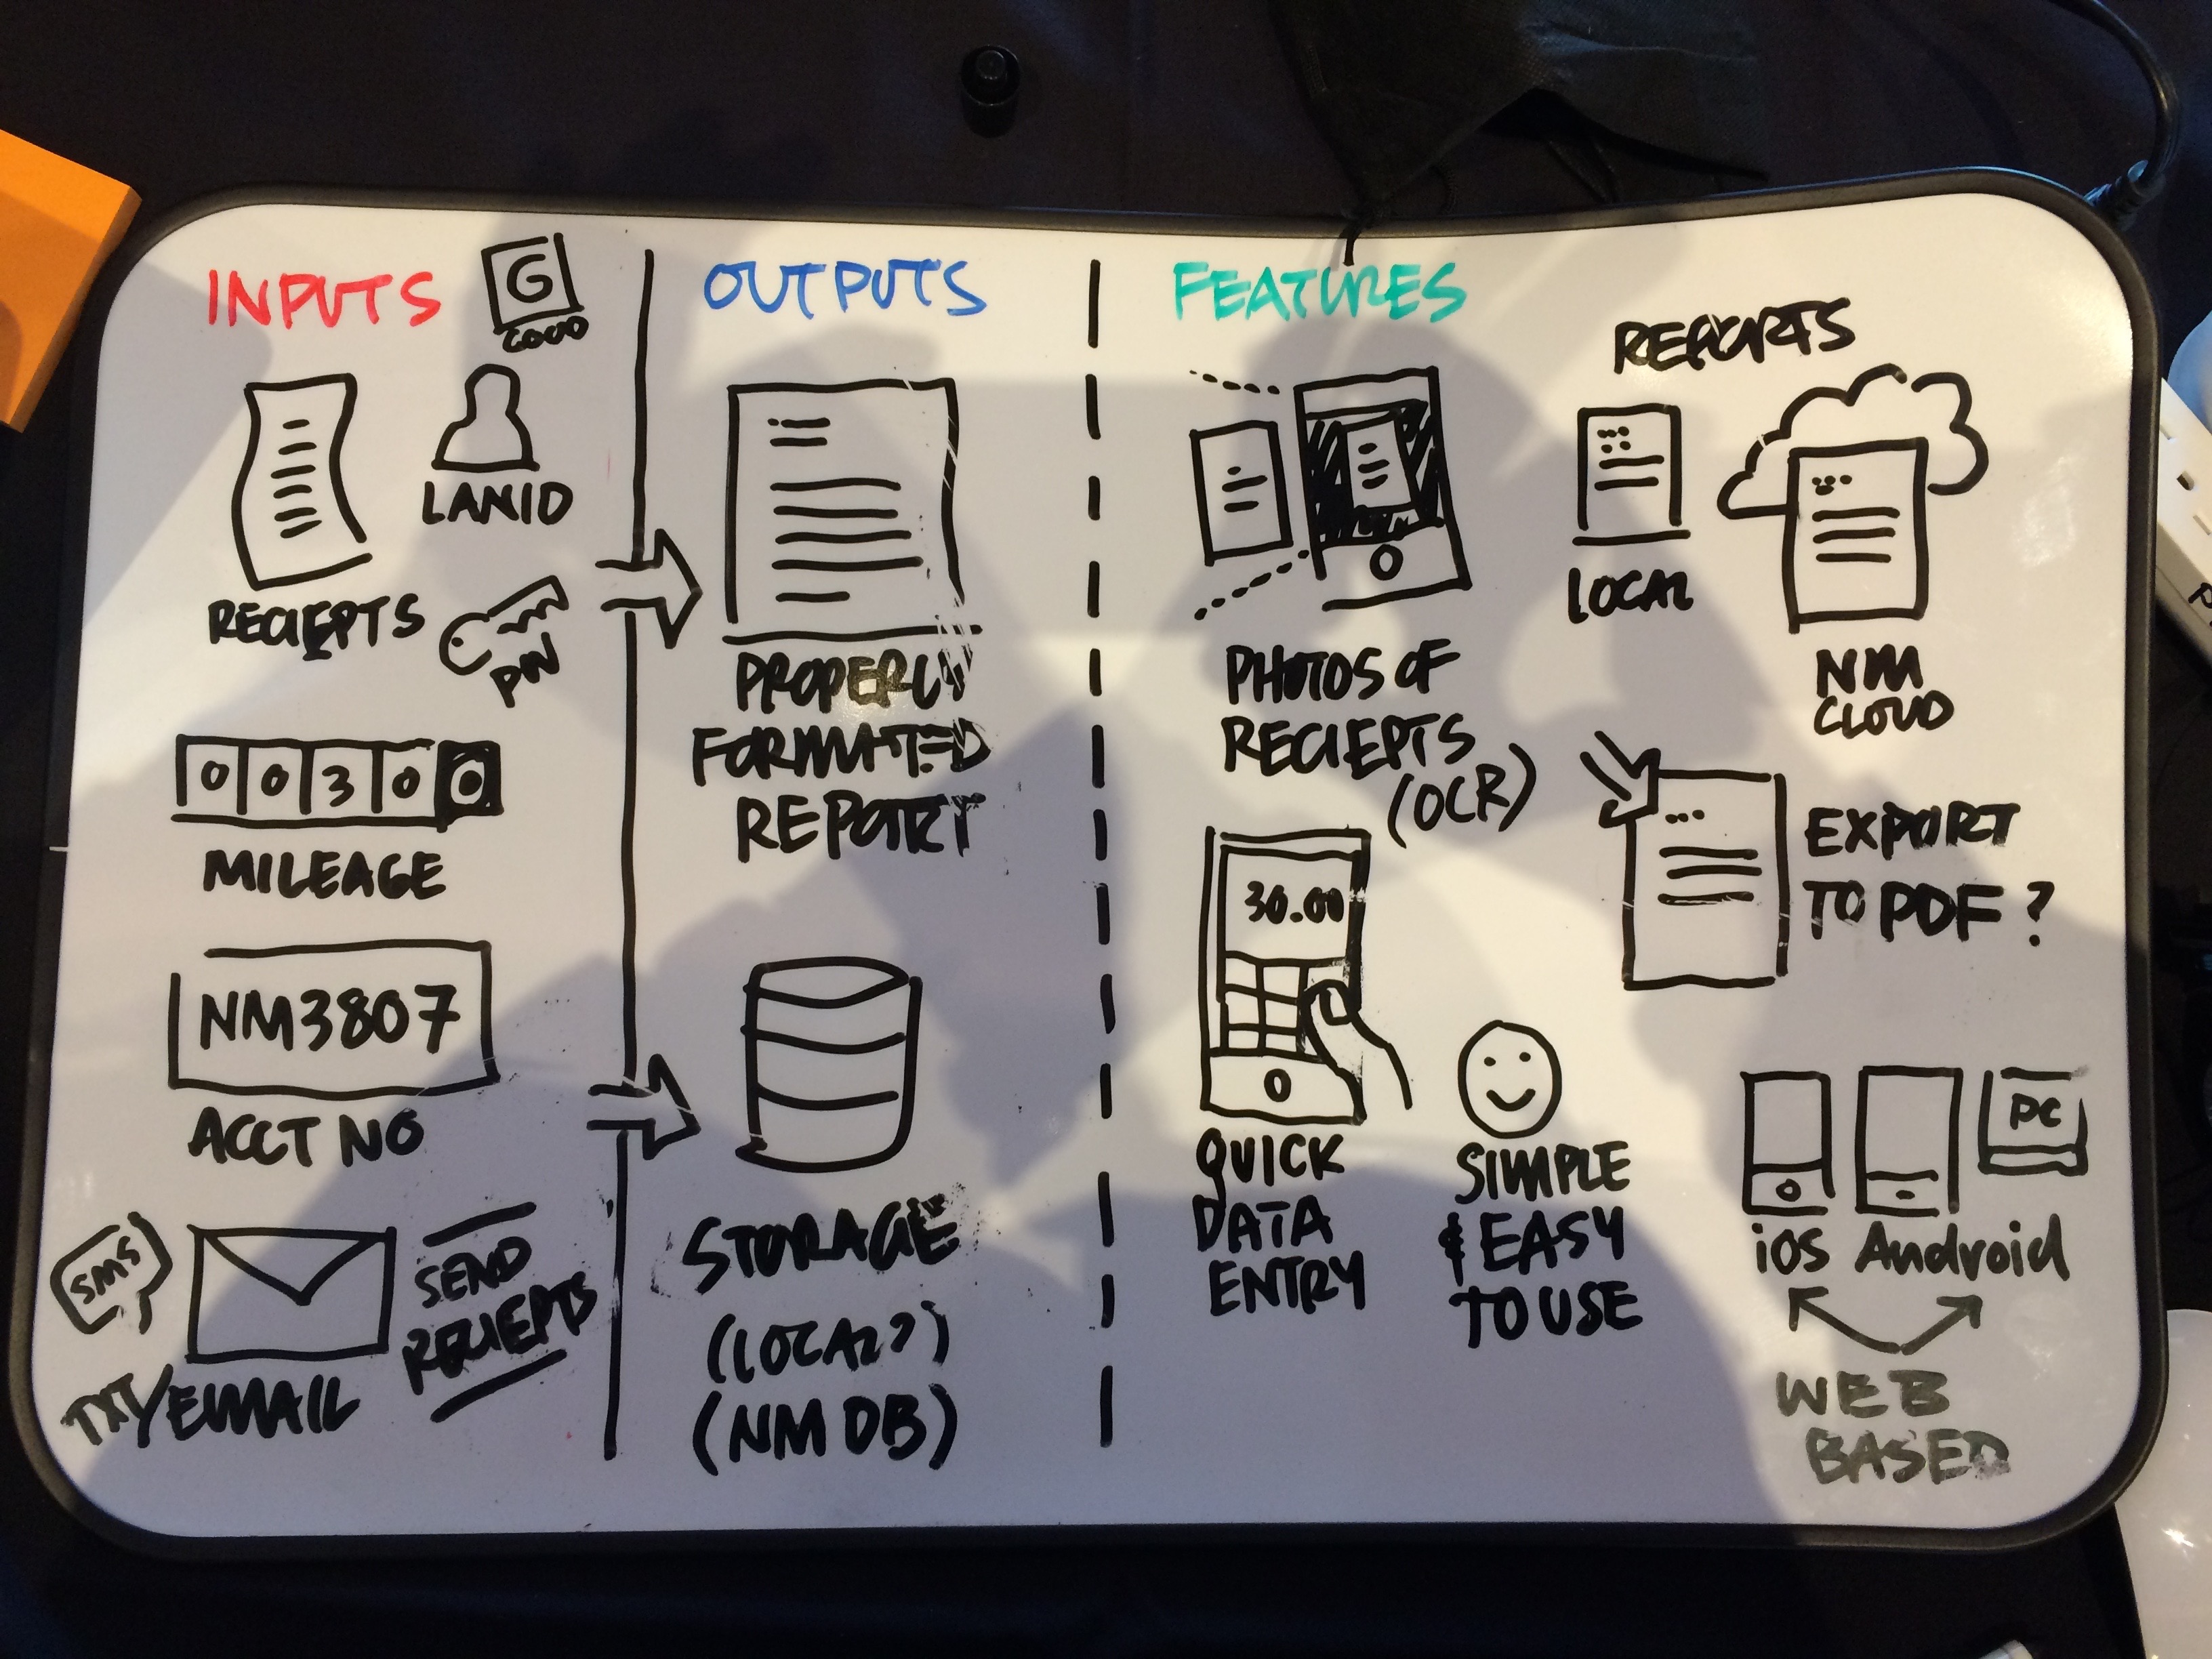 INPUTS
G
GOOD
LANID
RECIEPTS
PIN
00300
MILEAGE
NM3807
ACCT NO
SMS
SEND
RECIEPTS
TXT/EMAIL
OUTPUTS
PROPERLY
FORMATTED
REPORT
STORAGE
(LOCAL?)
(NM DB)
FEATURES
PHOTOS OF
RECIEPTS
(OCR)
30.00
QUICK
DATA
ENTRY
SIMPLE
& EASY
TO USE
REPORTS
LOCAL
NM
CLOUD
EXPORT
TO PDF?
PC
iOS Android
WEB
BASED